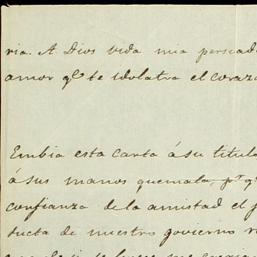 ria. A Dios vida mia persuad
amor qe te idolatra el coraz
Embia esta carta á su titula
á sus manos quemala pr q
confianza de la amistad el p
ducta de nuestro govierno r